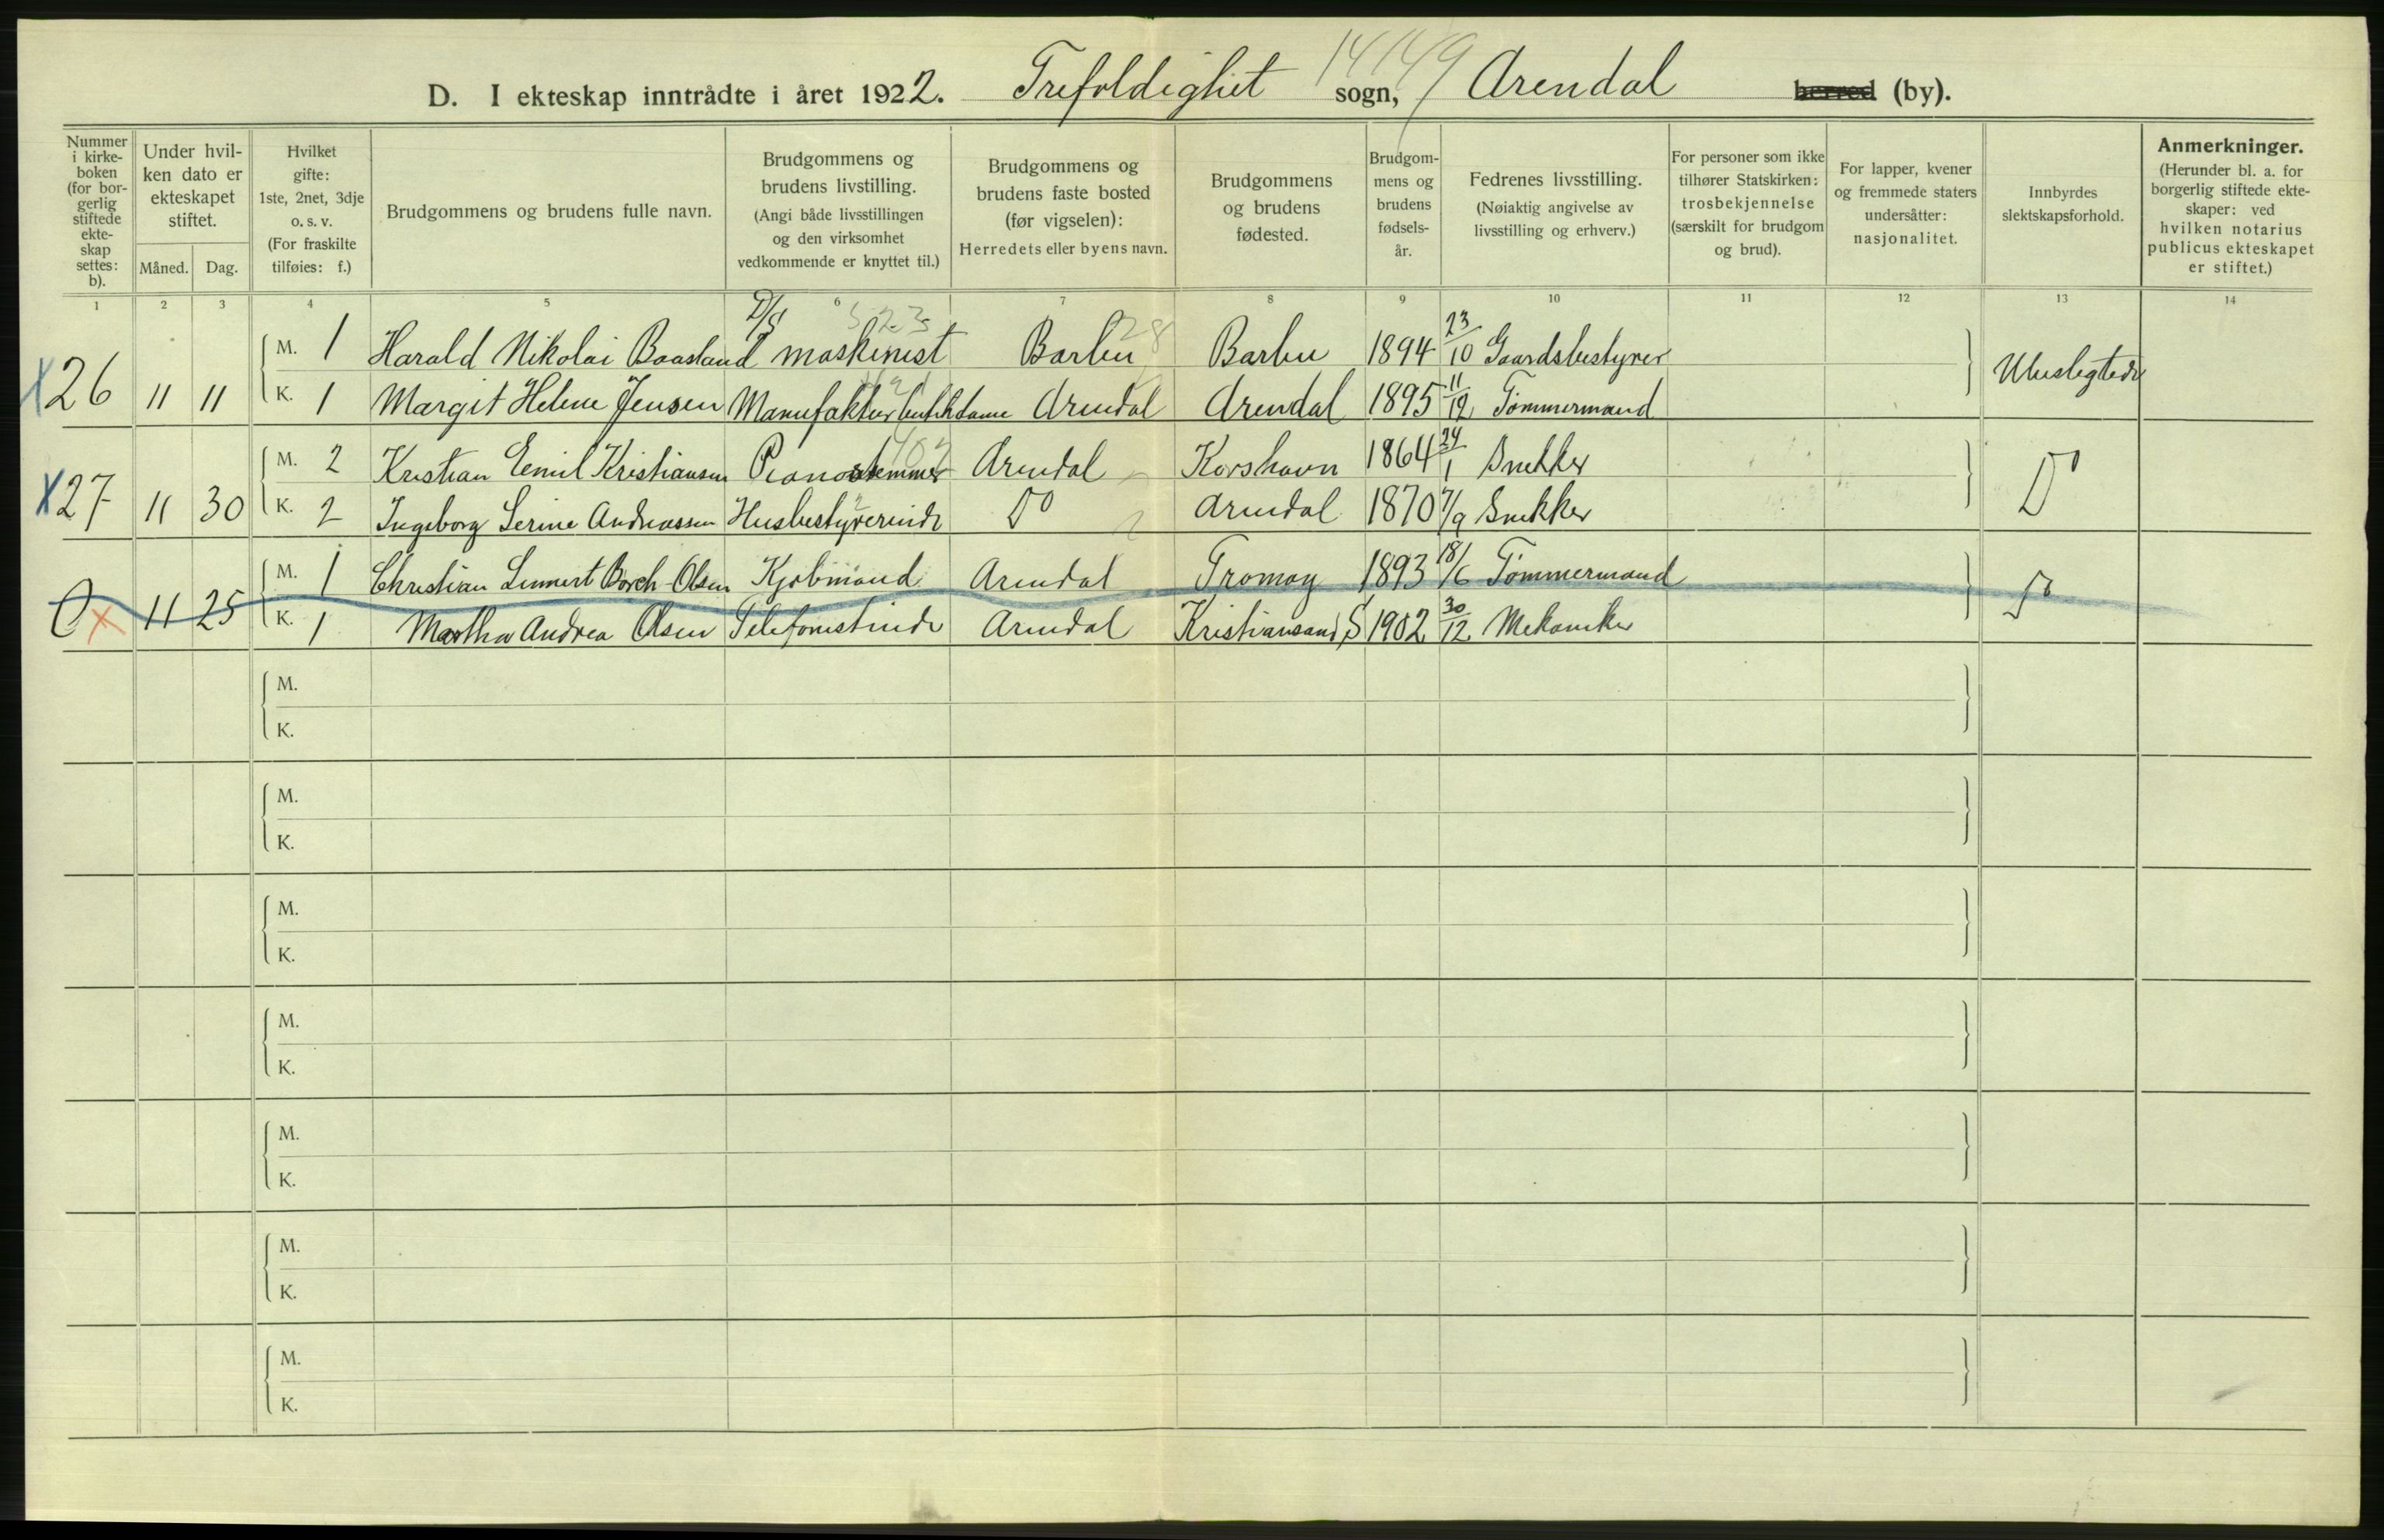 14149
D. I ekteskap inntrådte i året 1922. Trefoldighet sogn, Arendal herred (by).
Nummer i kirke- boken (for bor- gerlig stiftede ekte- skap settes: b).
Under hvil- ken dato er ekteskapet stiftet.
Måned. Dag.
Hvilket gifte: 1ste, 2net, 3dje o. s. v. (For fraskilte tilføies: f.)
Brudgommens og brudens fulle navn.
Brudgommens og brudens livstilling. (Angi både livsstillingen og den virksomhet vedkommende er knyttet til.)
Brudgommens og brudens faste bosted (før vigselen): Herredets eller byens navn.
Brudgommens og brudens fødested.
Brudgom- mens og brudens fødsels- år.
Fedrenes livsstilling. (Nøiaktig angivelse av livsstilling og erhverv.)
For personer som ikke tilhører Statskirken: trosbekjennelse (særskilt for brudgom og brud).
For lapper, kvener og fremmede staters undersåtter: nasjonalitet.
Innbyrdes slektskapsforhold.
Anmerkninger. (Herunder bl. a. for borgerlig stiftede ekte- skaper: ved hvilken notarius publicus ekteskapet er stiftet.)
1 2 3 4 5 6 7 8 9 10 11 12 13 14
X26 11 11 M. 1 Harald Nikolai Baasland D/S maskinist Barbu Barbu 1894 23/10 Gaardsbestyrer Ubeslegtede
K. 1 Margit Helene Jensen Manufaktur butikdame Arendal Arendal 1895 11/12 Tømmermand
X27 11 30 M. 2 Kristian Emil Kristiansen Pianostemmer Arendal Korshavn 1864 24/1 Snekker Do
K. 2 Ingeborg Serine Andreassen Husbestyrerinde Do Arendal 1870 7/9 Snekker
X 11 25 M. 1 Christian Lennert Borch-Olsen Kjøbmand Arendal Tromøy 1893 18/6 Tømmermand Do
K. 1 Martha Andrea Olsen Telefonistinde Arendal Kristiansand S 1902 30/12 Mekaniker
M.
K.
M.
K.
M.
K.
M.
K.
M.
K.
M.
K.
M.
K.